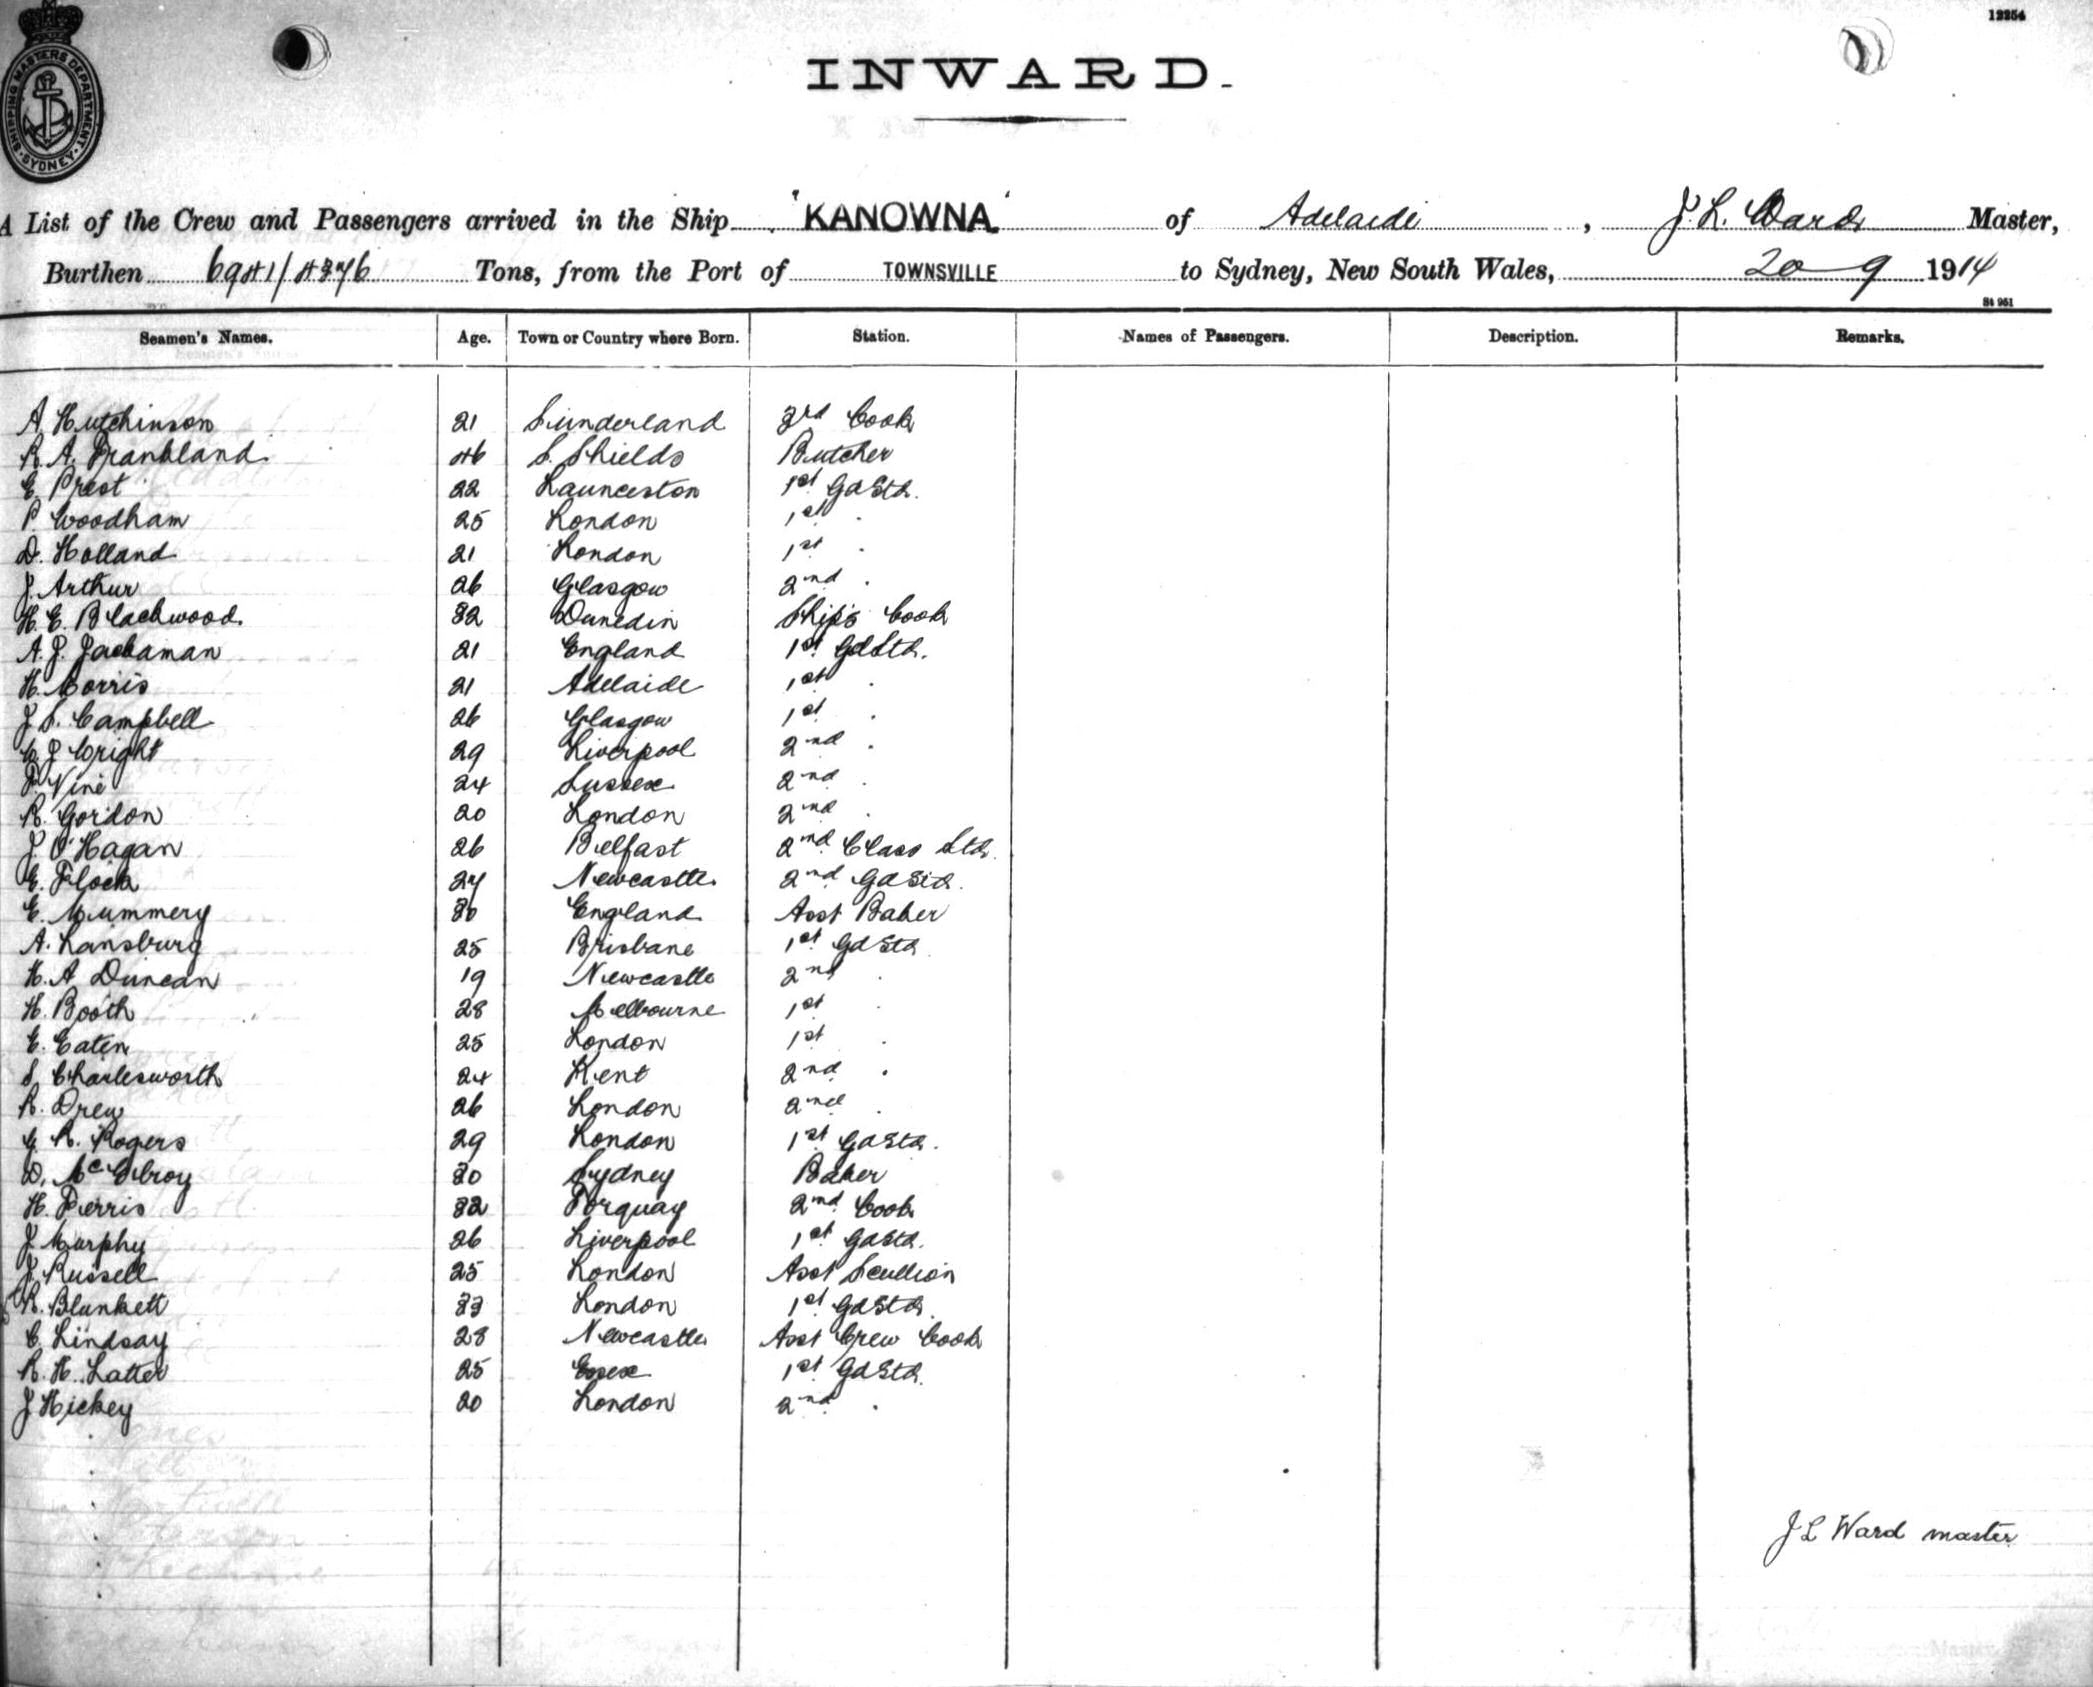 12254
SHIPPING MASTERS DEPARTMENT. SYDNEY.
INWARD.
A List of the Crew and Passengers arrived in the Ship "KANOWNA" of Adelaide, J. L. Ward Master,
Burthen 6941/4376 Tons, from the Port of TOWNSVILLE to Sydney, New South Wales, 20-9 1914
St 951
Seamen's Names. Age. Town or Country where Born. Station. Names of Passengers. Description. Remarks.
A. Hutchinson 21 Sunderland 3rd Cook
R. A. Frankland 46 S. Shields Butcher
E. Prest 22 Launceston 1st GdStd.
P. Woodham 25 London 1st .
D. Holland 21 London 1st .
J. Arthur 26 Glasgow 2nd .
H. E. Blackwood 32 Dunedin Ship's Cook
A. J. Jackaman 21 England 1st GdStd.
H. Morris 21 Adelaide 1st .
J. S. Campbell 26 Glasgow 1st .
J Wright 29 Liverpool 2nd .
Vine 24 Sussex 2nd .
R. Gordon 20 London 2nd .
J. O'Hagan 26 Belfast 2nd Class Std.
E. Flock 27 Newcastle 2nd GdStd.
E. Mummery 30 England Asst Baker
A. Lansbury 25 Brisbane 1st GdStd
H. A Duncan 19 Newcastle 2nd .
H. Booth 28 Melbourne 1st .
E. Eaten 25 London 1st .
S. Charlesworth 24 Kent 2nd .
R. Drew 26 London 2nd .
G. R. Rogers 29 London 1st GdStd.
D. McElroy 30 Sydney Baker
H. Ferris 32 Torquay 2nd Cook
J Murphy 26 Liverpool 1st GdStd.
J. Russell 25 London Asst Scullion
R. Blunkett 33 London 1st GdStd.
C. Lindsay 28 Newcastle Asst Crew Cook
R. H. Latter 25 Essex 1st GdStd.
J Hickey 20 London 2nd .
J L Ward master